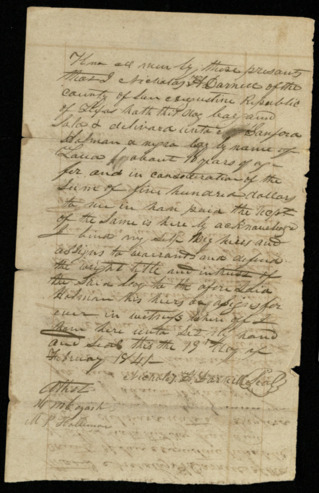 Know all men by these presants
that I Nicholas H Darnell of the
county of San Augustine Republic
of Texas hath this day bar and
sold & delivard unto Sanford
Holman a negro boy by name of
about 18 years of age
for and in consideration of the
sum of five hundred dollars
to me in han paid the recpt
of the same is here by acknowledged
I bind my self my heirs and
assigns to warrant and defend
the wright title and intrust of
the said boy to the afore said
Holman his heirs or assigns for
ever in witness whereof I
have here unto set my hand
and seal this the 19th day of
Febuary 1841
Nicholas H Darnell Seal
Attest
M